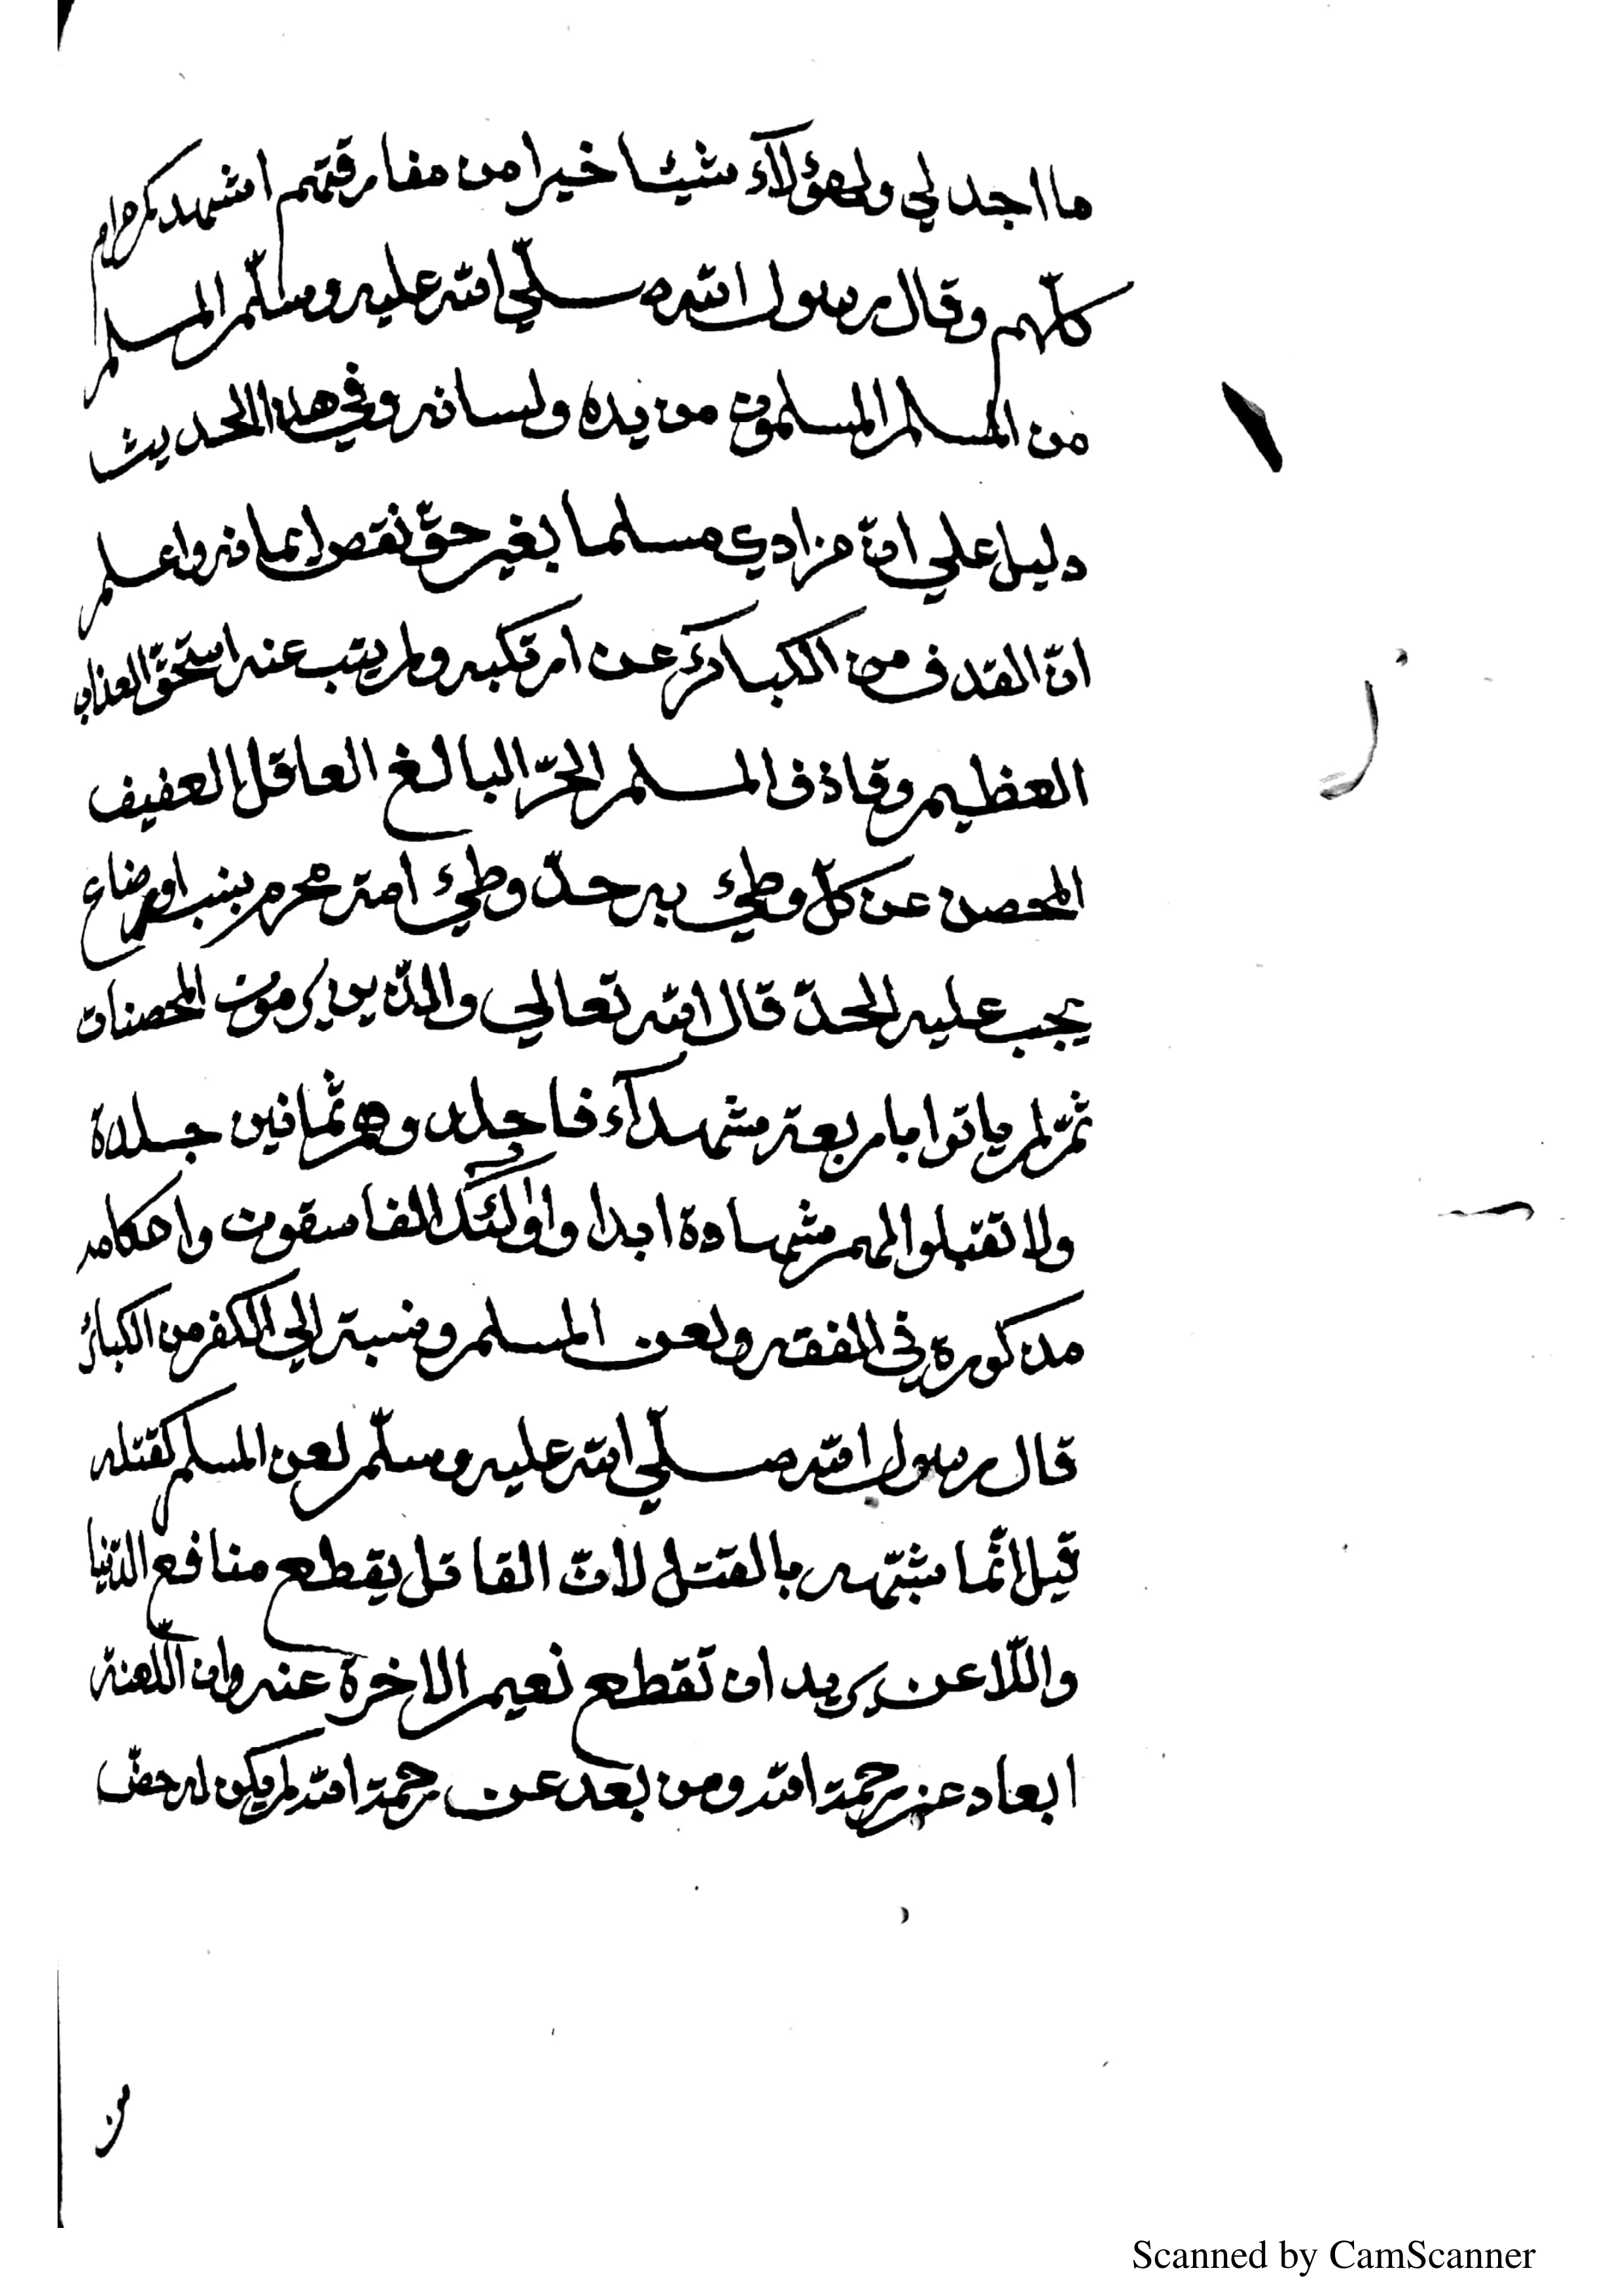 ما اجد لي ولهؤلآء شيئا خيرا من مفارقتهم اشهدكم احرار
كلّهم وقال رسول الله صلّي الله عليه وسلّم المسلم
من المسلم المسلمون من يده ولسانه وفي هذا الحديث
دليل علي انّ من اذي مسلما بغير حقّ نقص ايمانه واعلم
انّ القذف من الكبائر عن ارتكبه ولم يتب عنه استحقّ العذاب
العظيم وقاذف المسلم الحرّ البالغ العاقل العفيف
المحصن عن كلّ وطئ به حدّ وطئ امة محرم بنسب اورضاع
يجب عليه الحدّ قال الله تعالي والذّين يرمون المحصنات
ثمّ لم ياتوا باربعة شهدآء فاجلدوهم ثمانين جلدة
ولا تقبلوا لهم شهادة ابدا واولئك الفاسقون واحكامه
مذكورة في الفقه ولعن المسلم ونسبة الي الكفر من الكبائر
قال رسول الله صلّي الله عليه وسلّم لعن المسلم كقتله
قيل انّما شبّهه بالقتل لانّ القاتل يقطع منافع الدّنيا
واللّاعن يريد ان تقطع نعيم الاخرة عنه وان اللّعنة
ابعاد عن رحمة الله ومن بعد عن رحمة الله لم يكن له حظّ
Scanned by CamScanner